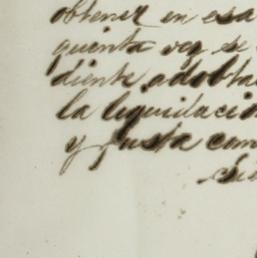 obtener en esa
quienta vez se
diente adobta
la liquidació
y justa can